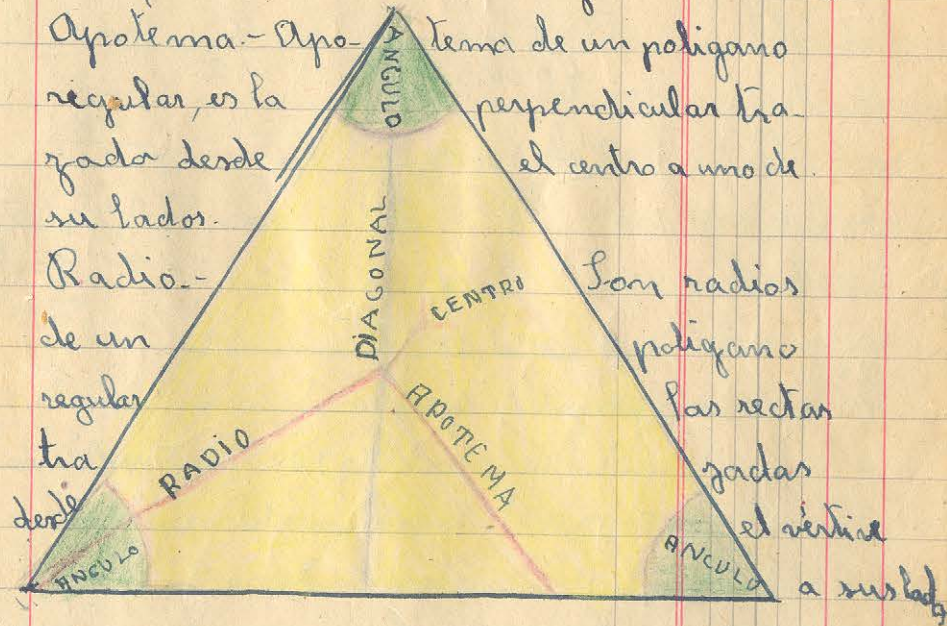 Apotema.- Apo- tema de un poligano
regular, es la perpendicular tra-
zada desde el centro a uno de
su lados.
Radio.- Son radios
de un poligano
regular las rectas
tra zadas
desde el vértice
a sus lados
ANGULO
DIAGONAL
CENTRO
RADIO
APOTEMA
ANGULO
ANGULO